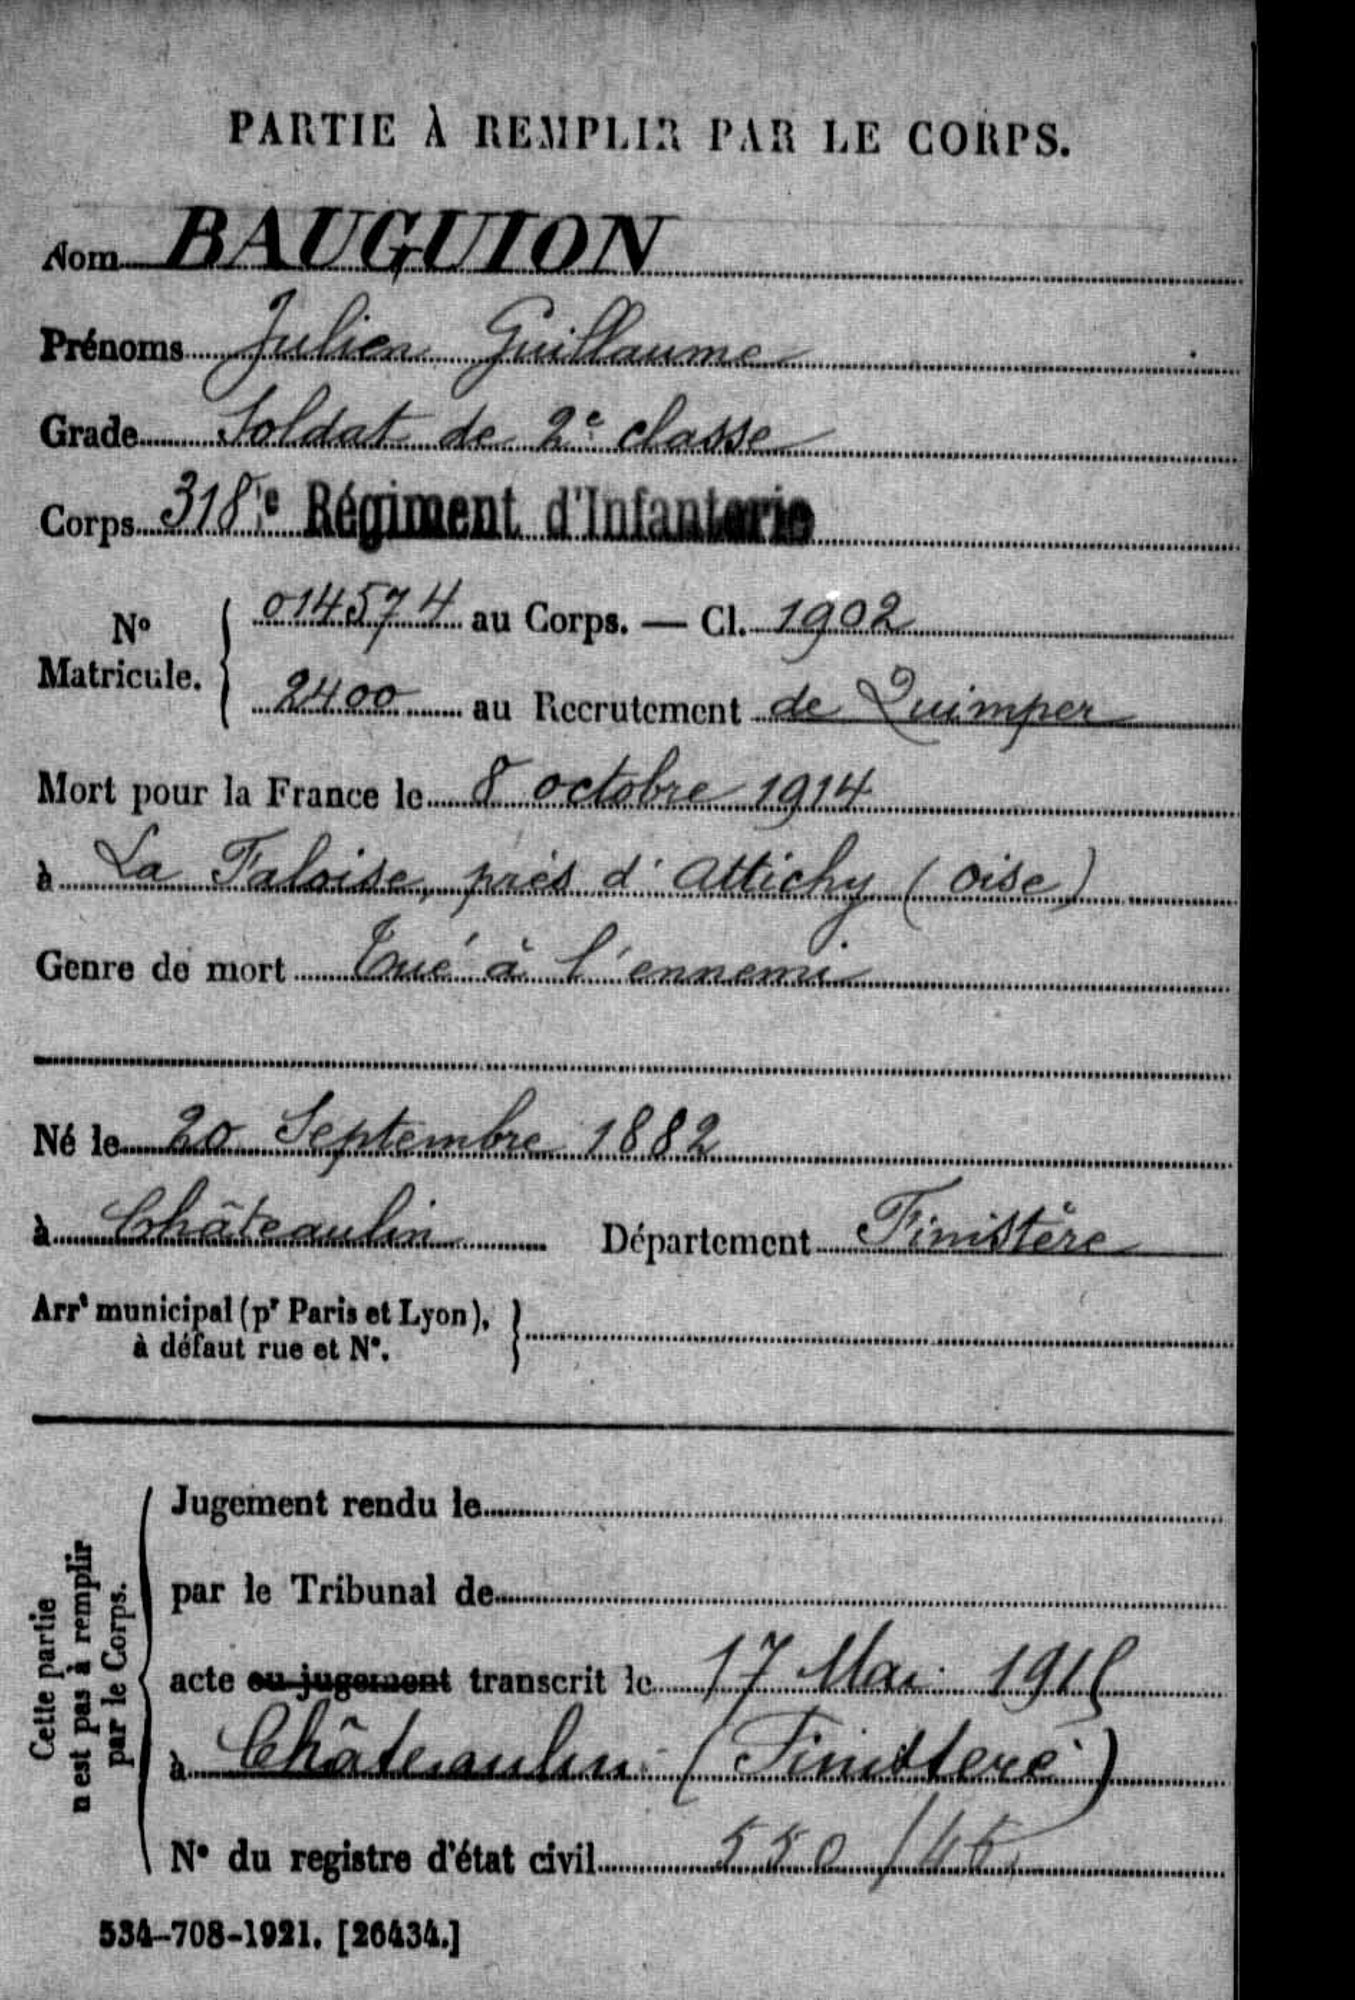 PARTIE À REMPLIR PAR LE CORPS.
Nom BAUGUION
Prénoms Julien Guillaume
Grade Soldat de 2e classe
Corps 318e Régiment d'Infanterie
No Matricule. { 014574 au Corps. — Cl. 1902
2400 au Recrutement de Quimper
Mort pour la France le 8 octobre 1914
à La Faloise, près d'Attichy (Oise)
Genre de mort Tué à l'ennemi
Né le 20 Septembre 1882
à Châteaulin Département Finistère
Arrt municipal (pr Paris et Lyon),
à défaut rue et No.
Cette partie
n'est pas à remplir
par le Corps.
Jugement rendu le
par le Tribunal de
acte ou jugement transcrit le 17 Mai 1915
à Châteaulin (Finistère)
No du registre d'état civil 550/46
534-708-1921. [26434.]